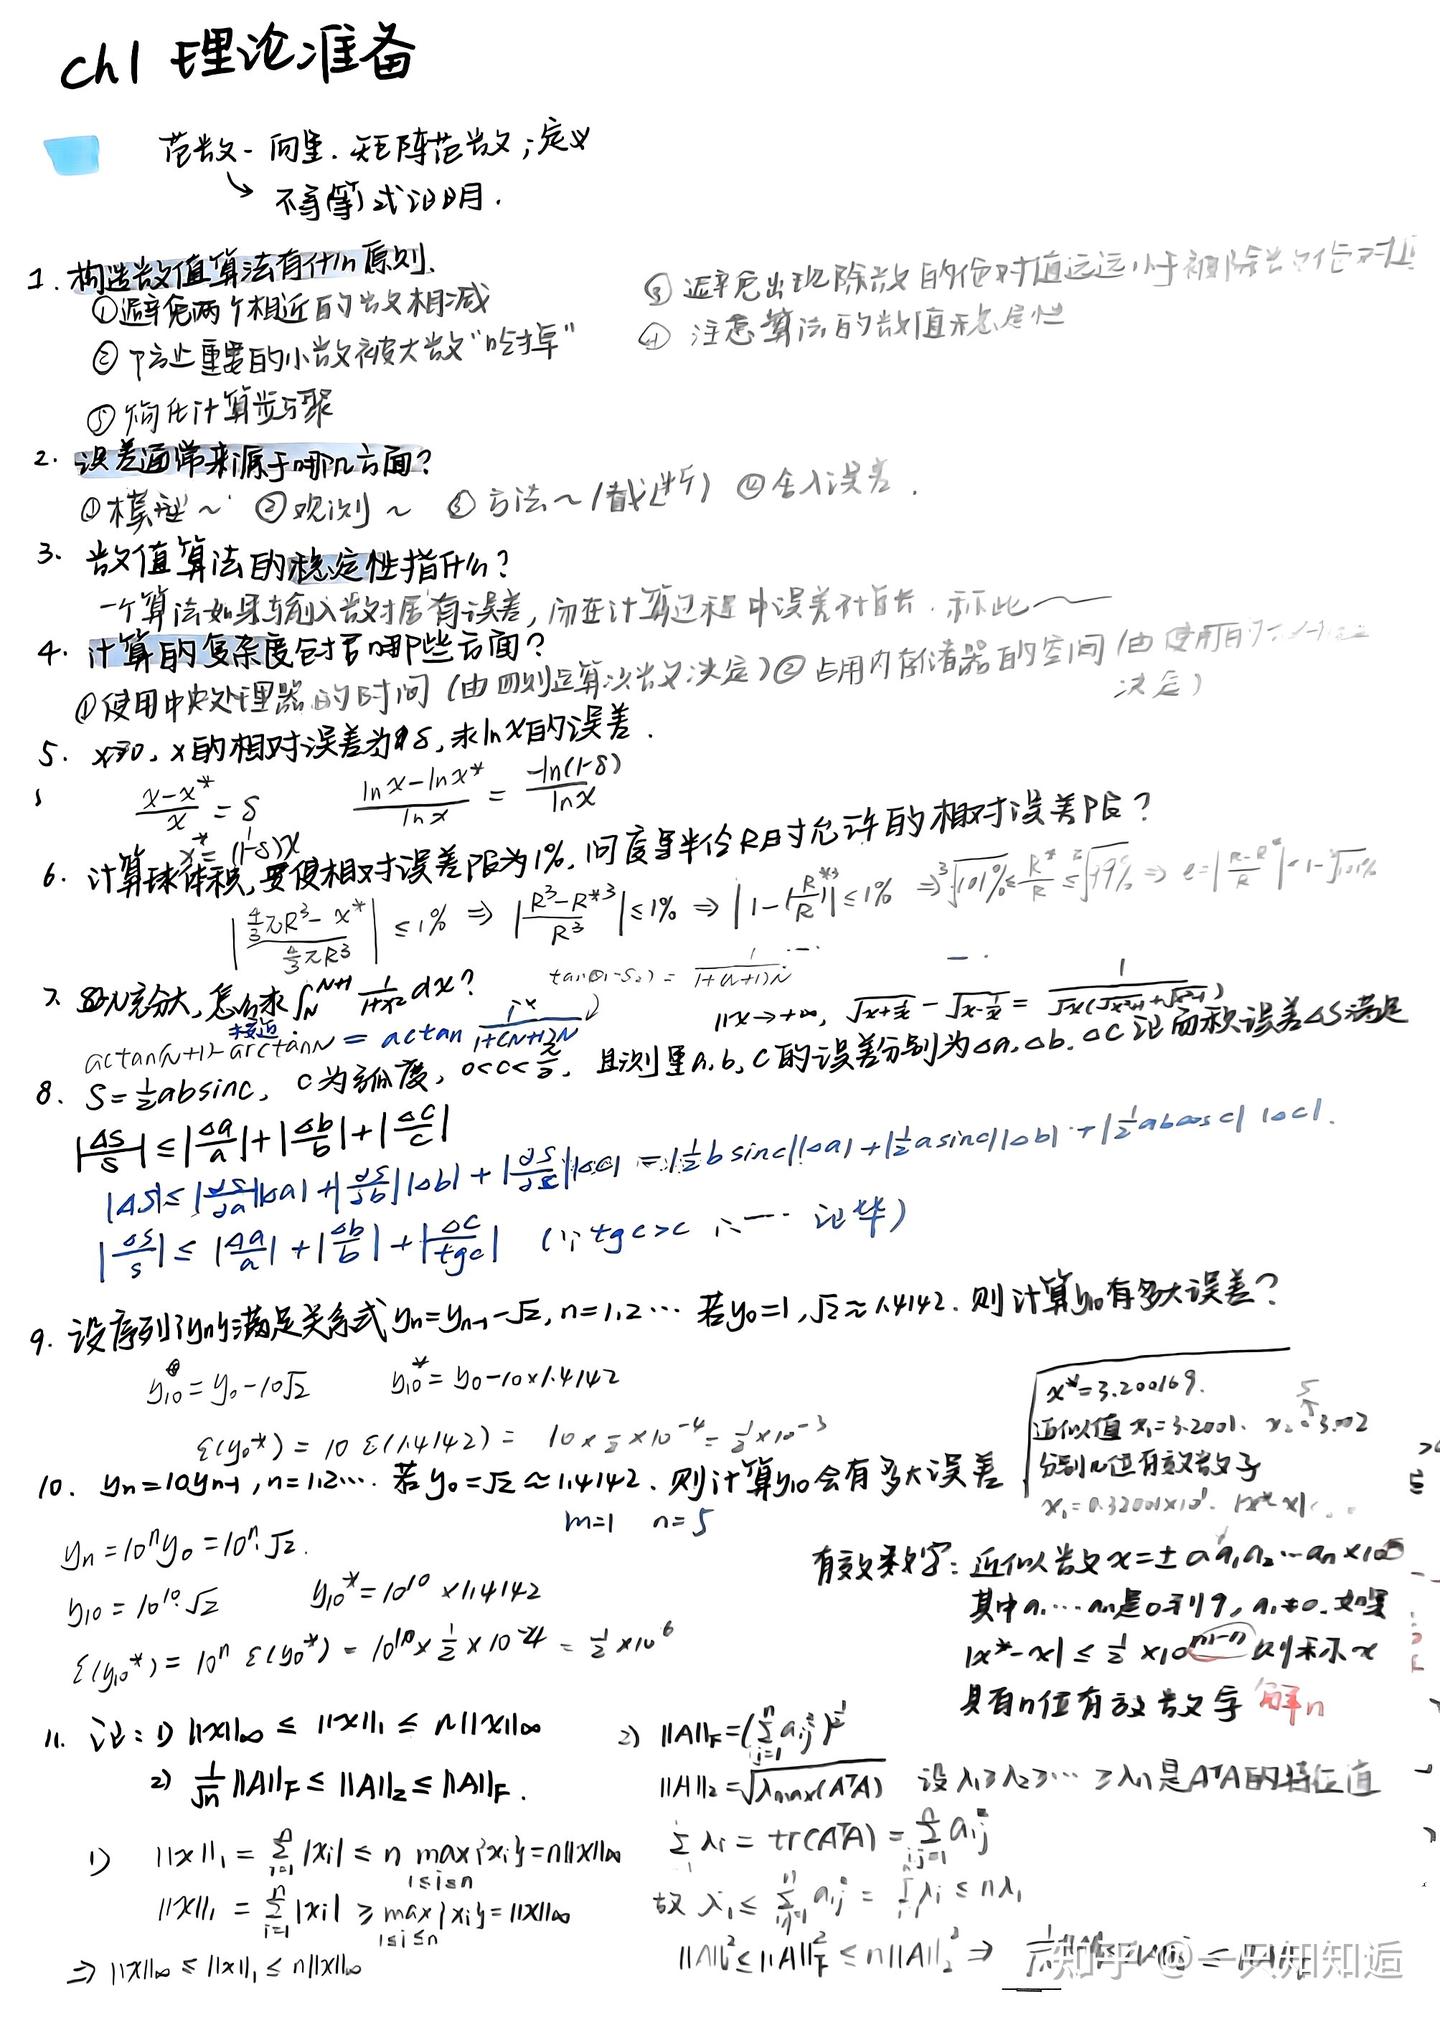 ch1 理论准备
范数 - 向量. 矩阵范数; 定义
↘ 不等(等)式证明.
1. 构造数值算法有什么原则.
①避免两个相近的数相减
③避免出现除数的绝对值远远小于被除数绝对值
②防止重要的小数被大数"吃掉"
④ 注意算法的数值稳定性
⑤ 简化计算步骤
2. 误差通常来源于哪几方面?
①模型~ ②观测~ ③方法~(截断) ④舍入误差.
3. 数值算法的稳定性指什么?
一个算法如果输入数据有误差, 而在计算过程中误差不增长. 称此——
4. 计算的复杂度包含哪些方面?
①使用中央处理器的时间 (由四则运算次数决定) ②占用内存储器的空间 (由使用的
决定)
5. x>0, x的相对误差为δ, 求ln x的误差.
(x-x*)/x = δ (ln x-ln x*)/ln x = -ln(1-δ)/ln x
x* = (1-δ)x
6. 计算球体积, 要使相对误差限为1%, 问度量半径R时允许的相对误差限?
|(4/3πR³-x*)/(4/3πR³)| ≤ 1% ⇒ |(R³-R*³)/R³| ≤ 1% ⇒ |1-(R*/R)³| ≤ 1% ⇒ ³√101% ≤ R*/R ≤ ³√99% ⇒ e=|(R-R*)/R|
7. 当N充分大, 怎么求 ∫_N^{N+1} 1/(1+x²) dx?
= 1/(1+(N+1)N)
接近
actan(N+1)-arctanN = actan 1/(1+(N+1)N)
x→+∞, √(x+1/x) - √(x-1/x) = 1/(√x(√(x²+1)+√(x²-1)))
8. S=½absinc, c为弧度, 0<c<π/2, 且测量a,b,c的误差分别为Δa,Δb,Δc 证面积误差ΔS满足
|ΔS/S| ≤ |Δa/a|+|Δb/b|+|Δc/c|
|ΔS| ≤ |∂S/∂a||Δa|+|∂S/∂b||Δb|+|∂S/∂c||Δc| = |½bsinc||Δa|+|½asinc||Δb|+|½abcosc||Δc|.
|ΔS/S| ≤ |Δa/a|+|Δb/b|+|Δc/tgc| (∵tgc>c ∴… 证毕)
9. 设序列{yn}满足关系式yn=yn-1-√2, n=1,2… 若y0=1, √2≈1.4142. 则计算y10有多大误差?
y10=y0-10√2 y10*=y0-10×1.4142
ε(y0*)=10 ε(1.4142)= 10×½×10⁻⁴=½×10⁻³
x*=3.200169.
近似值 x1=3.2001. x2=3.002
分别几位有效数字
x1=0.32001×10¹. |x*-x|
10. yn=10yn-1, n=1,2…. 若y0=√2≈1.4142. 则计算y10会有多大误差
m=1 n=5
yn=10ⁿy0=10ⁿ·√2.
y10=10¹⁰·√2 y10*=10¹⁰×1.4142
ε(y10*)=10ⁿ ε(y0*)=10¹⁰×½×10⁻⁴=½×10⁶
有效数字: 近似数x=±0.a1a2…an×10
其中a1…an是0到9, a1≠0. 如果
|x*-x| ≤ ½×10^{m-n} 则称x
具有n位有效数字 解n
11. 证: 1) ||x||∞ ≤ ||x||1 ≤ n||x||∞
2) 1/√n ||A||F ≤ ||A||2 ≤ ||A||F.
1) ||x||1 = Σ_{i=1}^{n} |xi| ≤ n max_{1≤i≤n}{xi}=n||x||∞
||x||1 = Σ_{i=1}^{n} |xi| ≥ max_{1≤i≤n}{xi}=||x||∞
⇒ ||x||∞ ≤ ||x||1 ≤ n||x||∞
2) ||A||F=(Σ_{ij=1}^{n} aij²)^{½}
||A||2=√λmax(AᵀA) 设λ1≥λ2≥…≥λn是AᵀA的特征值
Σλi = tr(AᵀA) = Σ_{ij=1}^{n} aij²
故 λ1 ≤ Σ_{ij=1}^{n} aij² = Σλi ≤ nλ1
||A||2² ≤ ||A||F² ≤ n||A||2² ⇒ 1/√n ||A||F ≤ ||A||2 ≤ ||A||F
知乎 @一只知知逅